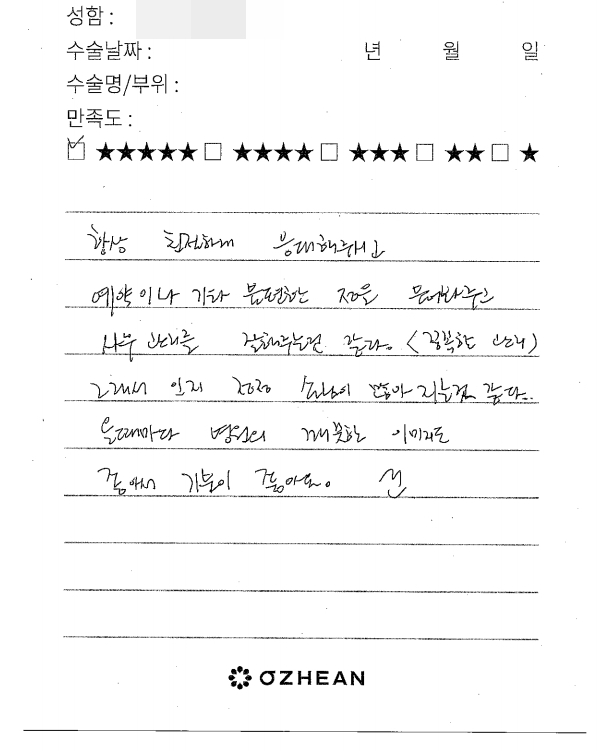 성함 :
수술날짜 : 년 월 일
수술명/부위 :
만족도 :
☑ ★★★★★ □ ★★★★ □ ★★★ □ ★★ □ ★
항상 친절하게 응대해주시고
예약이나 기타 불편한 점을 물어봐주고
사후 관리를 잘해주는것 같다. (꼼꼼한 관리)
그래서 인지 점점 손님이 많아 지는것 같다..
올때마다 병원의 깨끗한 이미지도
좋아서 기분이 좋아요.
OZHEAN